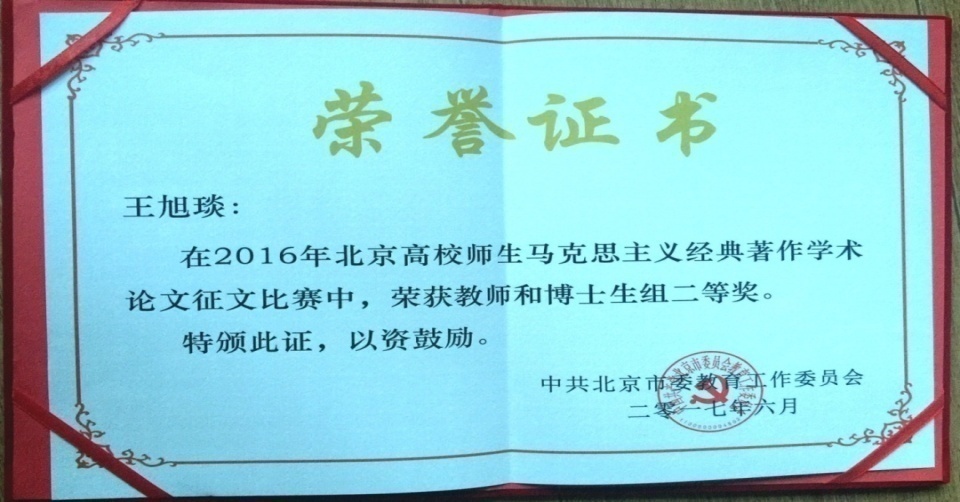 荣誉证书
王旭琰：
在2016年北京高校师生马克思主义经典著作学术
论文征文比赛中，荣获教师和博士生组二等奖。
特颁此证，以资鼓励。
中共北京市委教育工作委员会
二零一七年六月